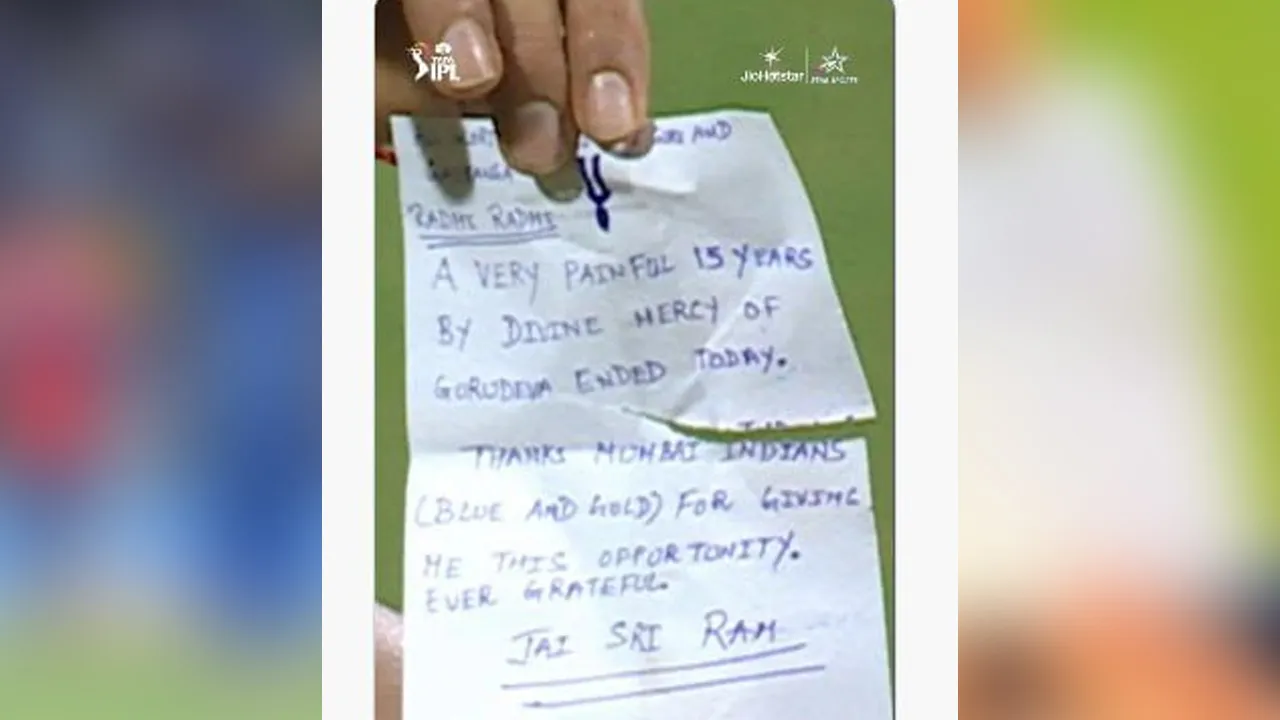 TATA IPL
JioHotstar
STAR SPORTS
GURU AND
RADHE RADHE
A VERY PAINFUL 15 YEARS
BY DIVINE MERCY OF
GORUDEVA ENDED TODAY.
THANKS MUMBAI INDIANS
(BLUE AND GOLD) FOR GIVING
ME THIS OPPORTUNITY.
EVER GRATEFUL.
JAI SRI RAM